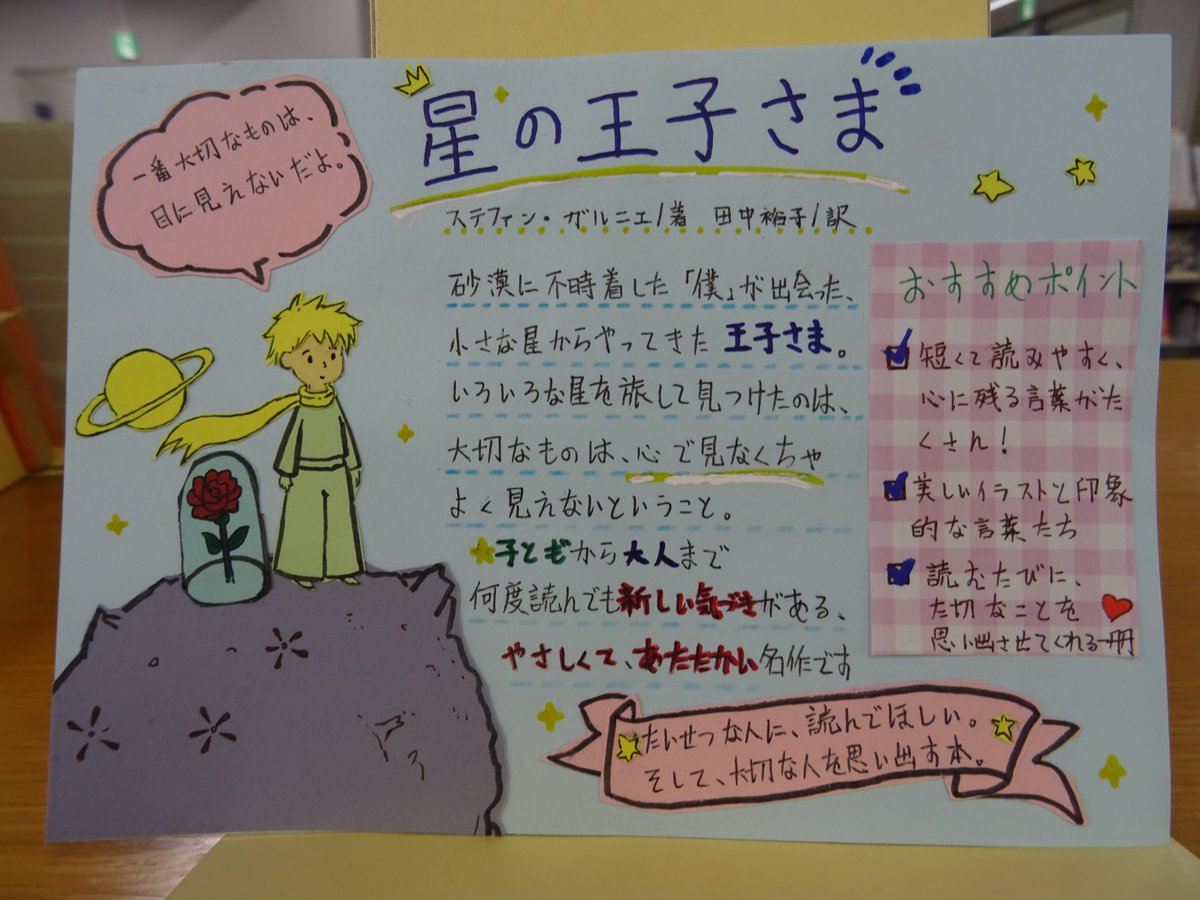 一番大切なものは、
目に見えないだよ。
星の王子さま
ステファン・ガルニエ/著 田中裕子/訳
砂漠に不時着した「僕」が出会った、
小さな星からやってきた王子さま。
いろいろな星を旅して見つけたのは、
大切なものは、心で見なくちゃ
よく見えないということ。
子どもから大人まで
何度読んでも新しい気づきがある、
やさしくて、あたたかい名作です
おすすめポイント
短くて読みやすく、
心に残る言葉がた
くさん!
美しいイラストと印象
的な言葉たち
読むたびに、
大切なことを
思い出させてくれる一冊
たいせつな人に、読んでほしい。
そして、大切な人を思い出す本。